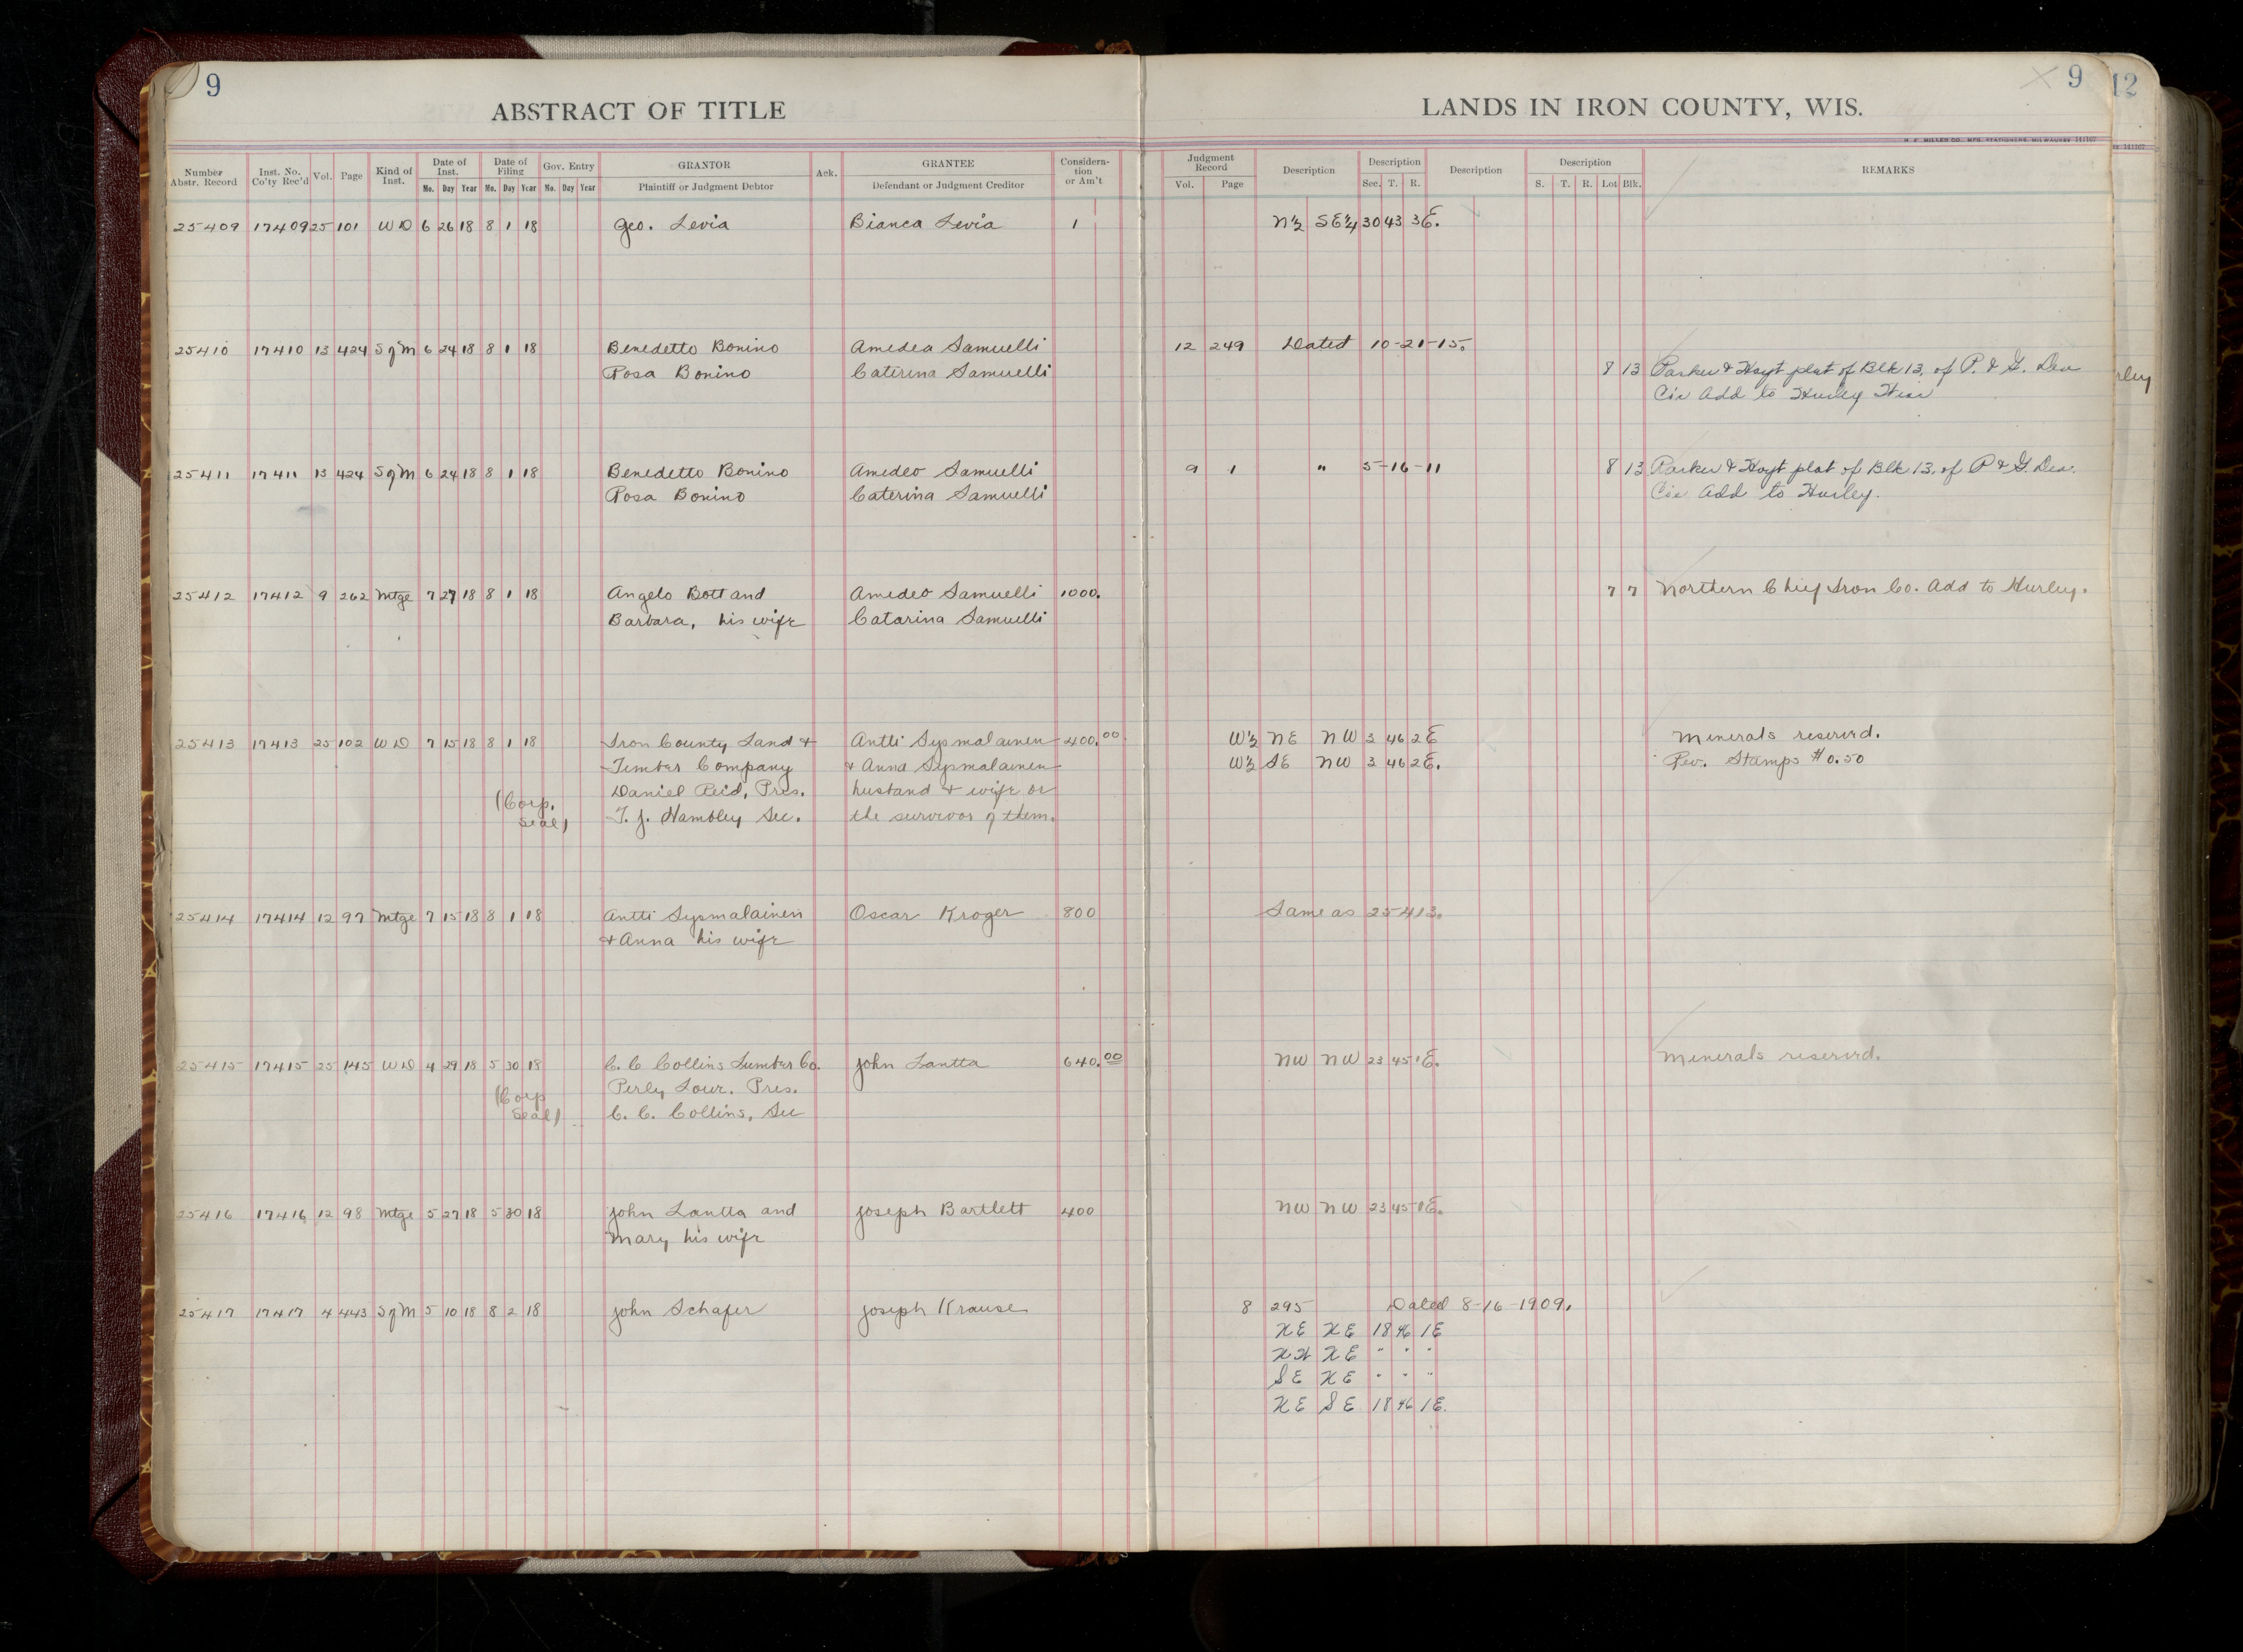 9
ABSTRACT OF TITLE
LANDS IN IRON COUNTY, WIS.
9
12
H. F. MILLER CO., MFG. STATIONERS, MILWAUKEE 141167
Number Abstr. Record | Inst. No. Co'ty Rec'd | Vol. | Page | Kind of Inst. | Date of Inst. Mo. Day Year | Date of Filing Mo. Day Year | Gov. Entry Mo. Day Year | GRANTOR Plaintiff or Judgment Debtor | Ack. | GRANTEE Defendant or Judgment Creditor | Considera-tion or Am't | Judgment Record Vol. Page | Description | Description Sec. T. R. | Description | Description S. T. R. Lot Blk. | REMARKS
25409 17409 25 101 WD 6 26 18 8 1 18 Geo. Levia Bianca Levia 1 N½ SE¼ 30 43 3E.
25410 17410 13 424 SgM 6 24 18 8 1 18 Benedetto Bonino Amedea Samuelli 12 249 Dated 10-21-15.
Rosa Bonino Caterina Samuelli 8 13 Parker & Hoyt plat of Blk 13, of P. & G. Dev
Co's Add to Hurley Wis
rley
25411 17411 13 424 SgM 6 24 18 8 1 18 Benedetto Bonino Amedeo Samuelli 9 1 " 5-16-11 8 13 Parker & Hoyt plat of Blk 13, of P & G. Dev.
Rosa Bonino Caterina Samuelli Co's Add to Hurley.
25412 17412 9 262 Mtge 7 27 18 8 1 18 Angelo Bott and Amedeo Samuelli 1000. 7 7 Northern Chief Iron Co. Add to Hurley.
Barbara, his wife Catarina Samuelli
25413 17413 25 102 WD 7 15 18 8 1 18 Iron County Land & Antti Sysmalainen 400.00 W½ NE NW 3 46 2E Minerals reservd.
Timber Company & Anna Sysmalainen W½ SE NW 3 46 2E. Rev. Stamps $0.50
(Corp. Daniel Reid, Pres. husband & wife or
Seal) T. J. Hambley Sec. the survivor of them.
25414 17414 12 97 Mtge 7 15 18 8 1 18 Antti Sysmalainen Oscar Kroger 800 Same as 25413.
& Anna his wife
25415 17415 25 145 WD 4 29 18 5 30 18 C. C. Collins Lumber Co. John Lantta 640.00 NW NW 23 45 1E. Minerals reservd.
(Corp Perley Lowr. Pres.
Seal) C. C. Collins, Sec
25416 17416 12 98 Mtge 5 27 18 5 30 18 John Lantta and Joseph Bartlett 400 NW NW 23 45 1E.
Mary his wife
25417 17417 4 443 SgM 5 10 18 8 2 18 John Schafer Joseph Krause 8 295 Dated 8-16-1909.
NE NE 18 46 1E
NW NE " " "
SE NE " " "
NE SE 18 46 1E.